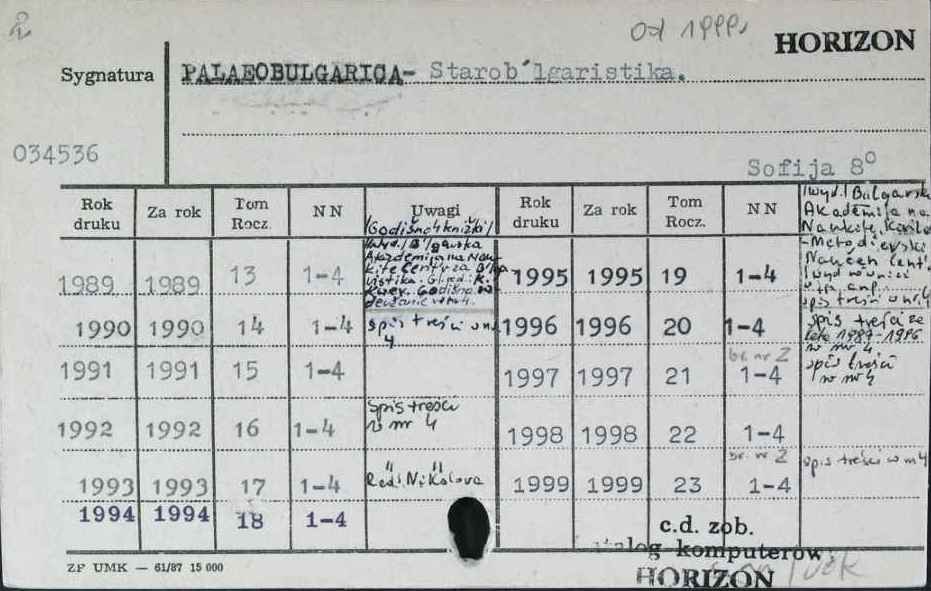 od 1999
HORIZON
Sygnatura
PALAEOBULGARICA- Starob'lgaristika.
034536
Sofija 8°
Rok druku Za rok Tom Rocz. NN Uwagi Rok druku Za rok Tom Rocz. NN
/wyd./ Bulgarska
Akademija na
Naukite, Kirilo
-Metodievski
Naučen Cent.
spis treści w nr 4
/Godišno 4 knižki/
/wyd./ B'lgarska
Akademija na Nau-
kite Cent'r za B'lga-
ristika. Gł. red. K.
Kuev. Godišno
1989 1989 13 1-4
1995 1995 19 1-4
1990 1990 14 1-4 spis treści w nr 4
1996 1996 20 1-4 spis treści za
lata 1987-1996
w nr 4
1991 1991 15 1-4
br. nr 2
1997 1997 21 1-4 spis treści
w nr 4
1992 1992 16 1-4 spis treści
w nr 4
1998 1998 22 1-4
1993 1993 17 1-4 Red. Nikolova
br. nr 2
1999 1999 23 1-4 spis treści w nr 4
1994 1994 18 1-4
c.d. zob.
katalog komputerów
HORIZON
ZF UMK — 61/87 15 000